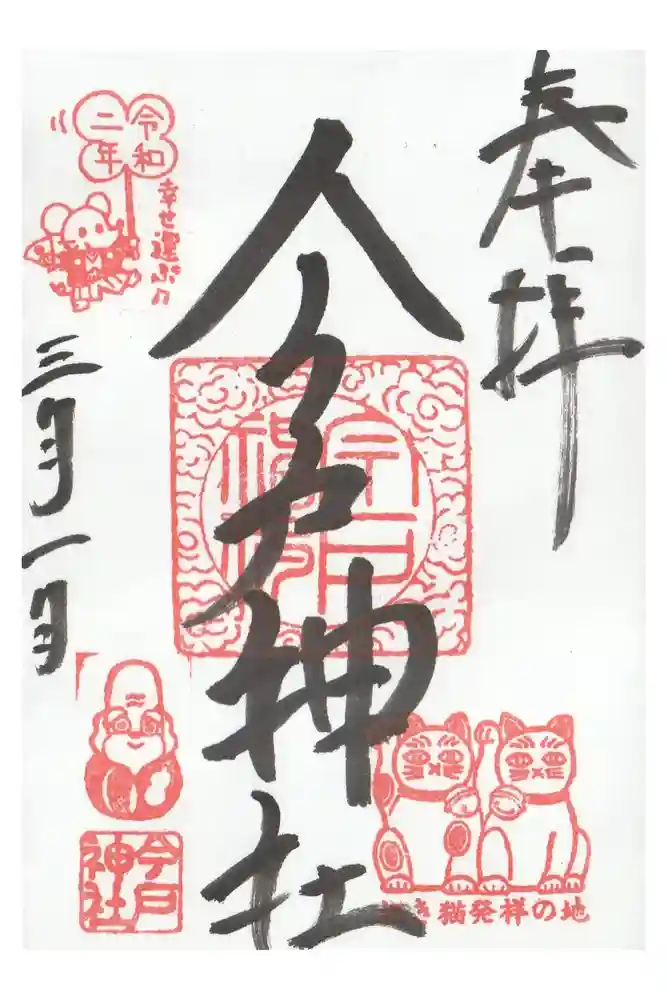 奉拝
今戸神社
今戸神社
令和
二年
幸せ運ぶ♫
三月一日
今戸
神社
招き猫発祥の地